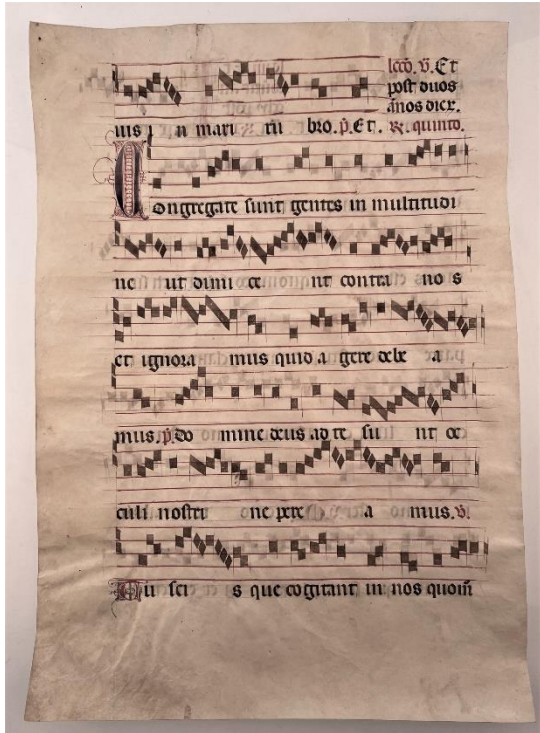 lcco. v. Et
post duos
ãnos dicr.
uis i n mari tu bro. p. Et. R. quinto.
Congregate sunt gentes in multitudi
ne ut dimi ce nt contra no s
et ignora mus quid a gere debe a
mus. p. do mine deus ad te su nt oc
culi nostri ne pere a mus. v.
Tu sci s que cogitant in nos quom̄